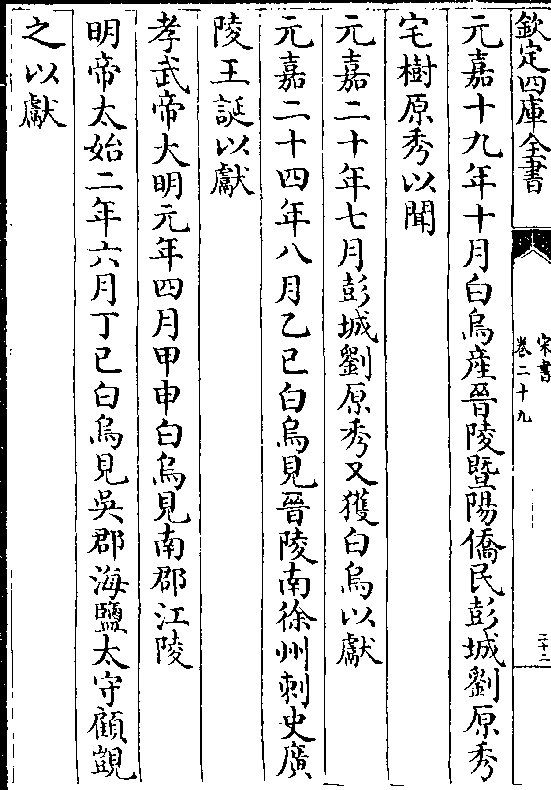 欽定四庫全書
宋書
卷二十九
三十二
元嘉十九年十月白烏產晉陵暨陽僑民彭城劉原秀
宅樹原秀以聞
元嘉二十年七月彭城劉原秀又獲白烏以獻
元嘉二十四年八月乙巳白烏見晉陵南徐州刺史廣
陵王誕以獻
孝武帝大明元年四月甲申白烏見南郡江陵
明帝太始二年六月丁巳白烏見吳郡海鹽太守顧覬
之以獻